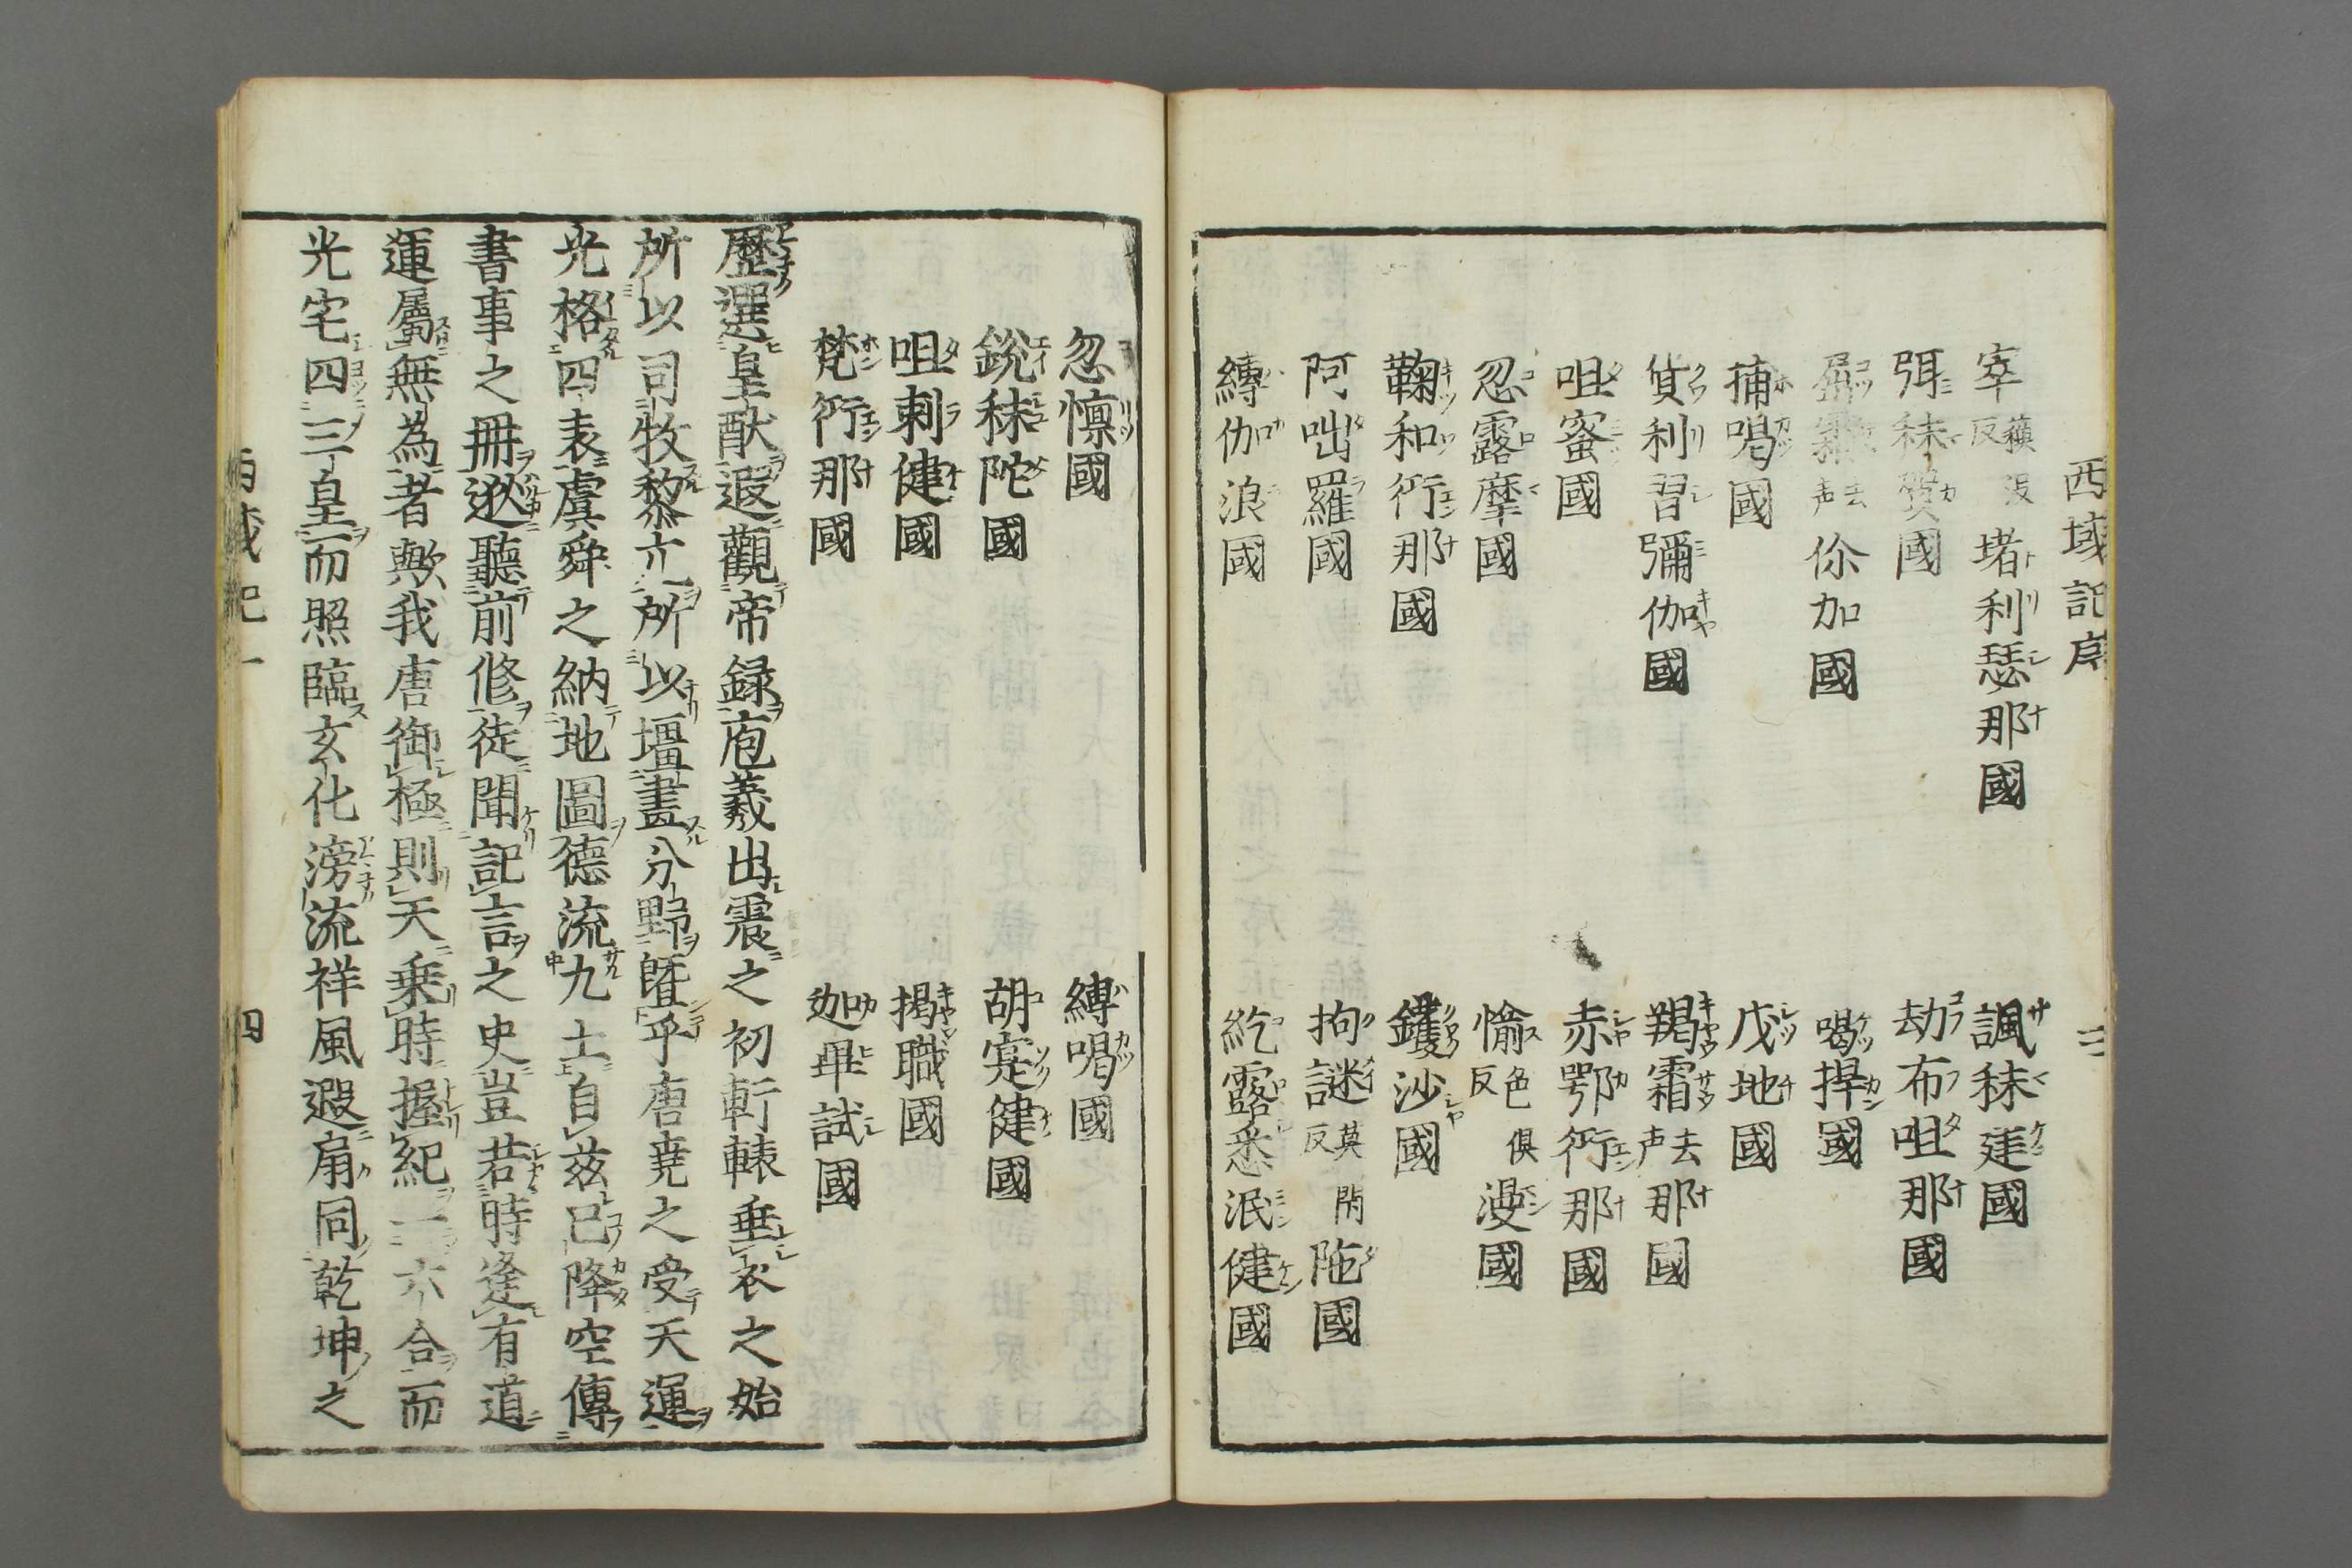 西域記序
窣蘇沒反堵利瑟那國
颯秣建國
弭秣賀國
劫布呾那國
屈霜去声你加國
喝捍國
捕喝國
戊地國
貨利習彌伽國
羯霜去声那國
呾蜜國
赤鄂衍那國
忽露摩國
愉色俱反漫國
鞠和衍那國
鑊沙國
阿咄羅國
拘謎莫閇反陁國
縛伽浪國
紇露悉泯健國
忽懍國
縛喝國
銳秣陀國
胡寔健國
呾剌健國
揭職國
梵衍那國
迦畢試國
歷選皇猷遐觀帝録庖羲出震之初軒轅垂衣之始
所以司牧黎元所以壃畫分野曁乎唐堯之受天運
光格四表虞舜之納地圖德流九土自茲已降空傳
書事之冊逖聽前修徒聞記言之史豈若時逢有道
運屬無為者歟我唐御極則天乗時握紀一六合而
光宅四三皇而照臨玄化滂流祥風遐扇同乾坤之
西域記一
四